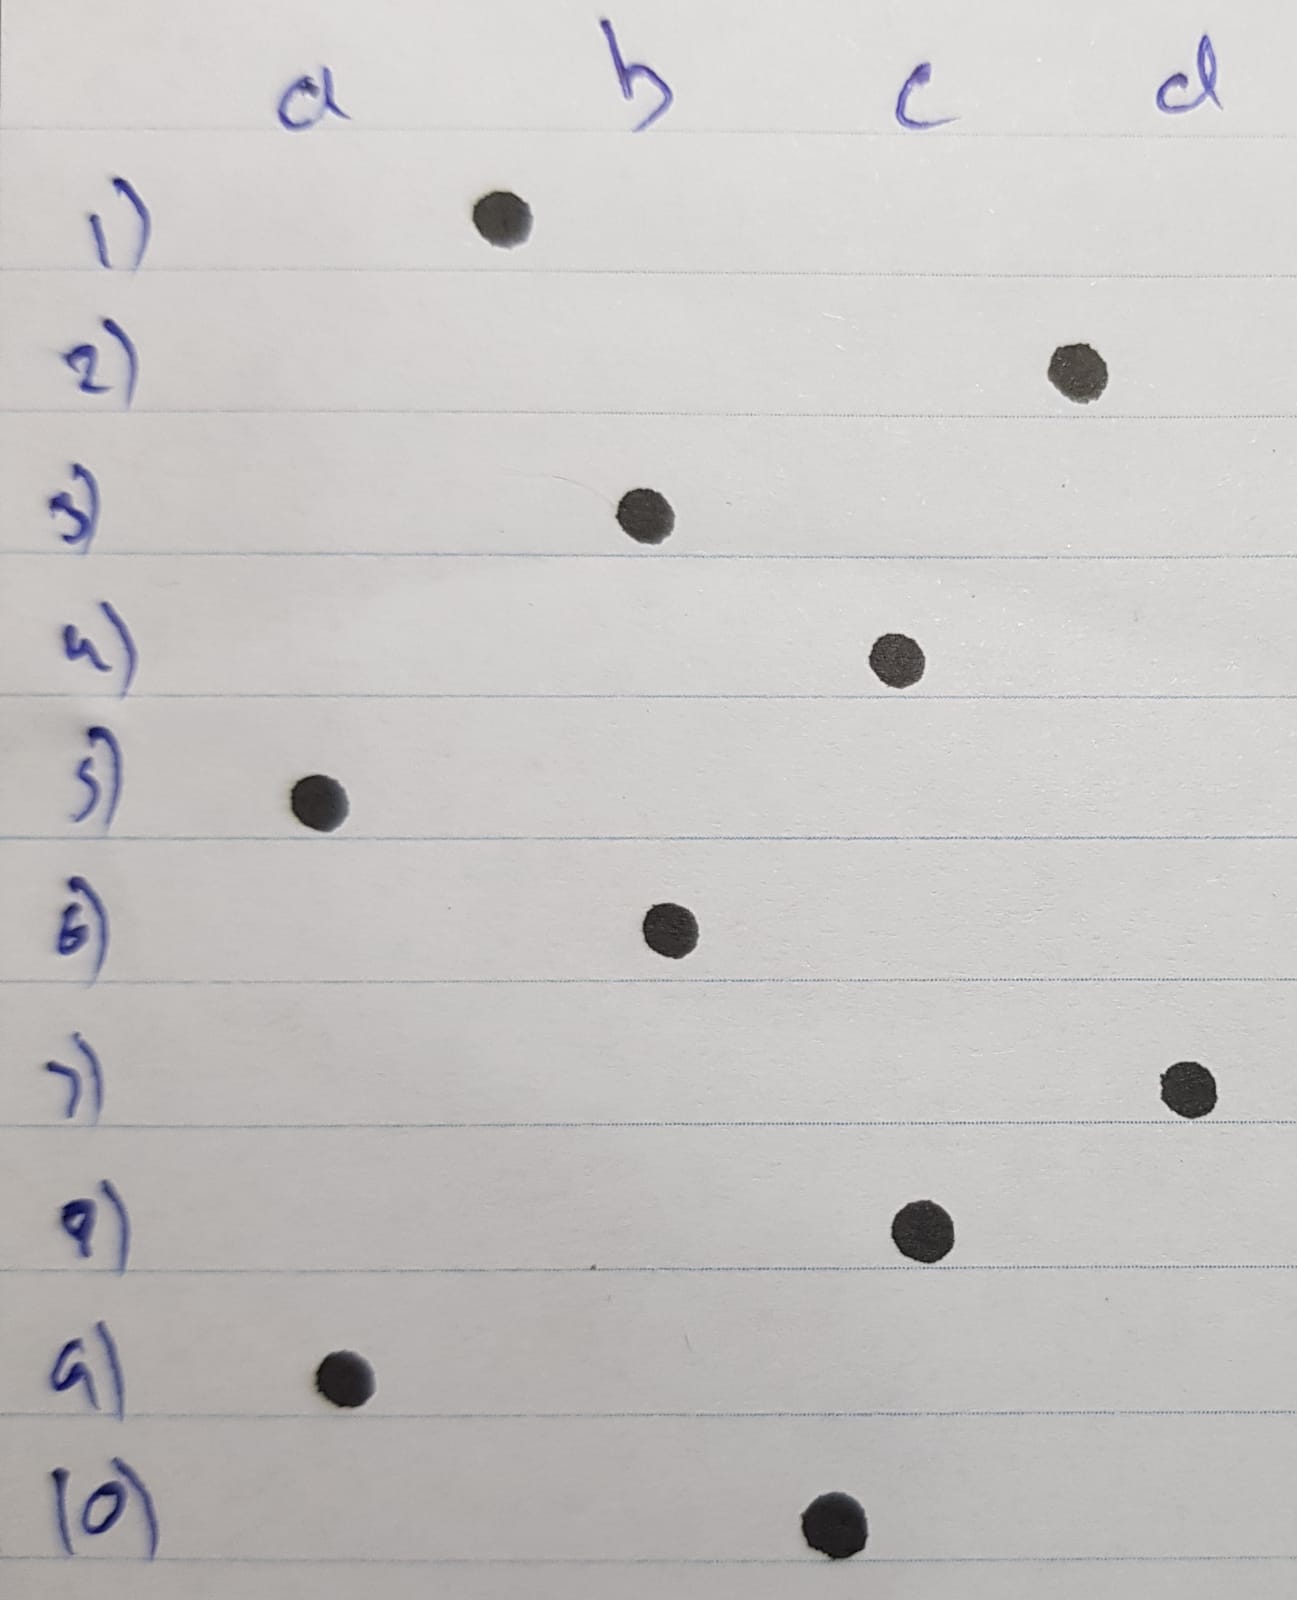 a b c d
1)
2)
3)
4)
5)
6)
7)
8)
9)
10)